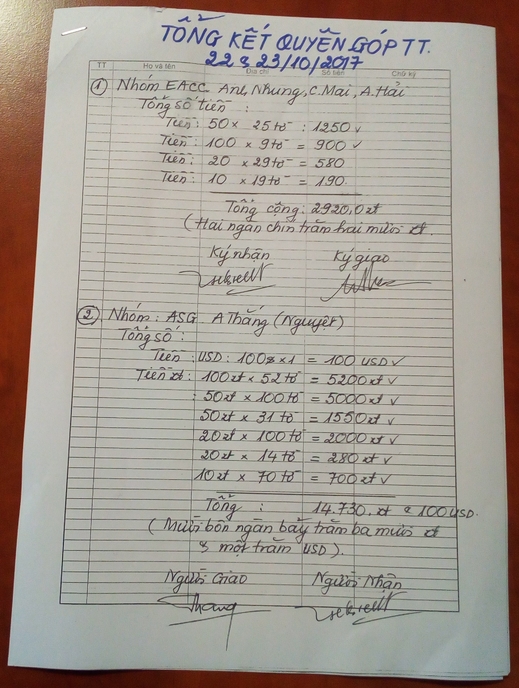 TỔNG KẾT QUYÊN GÓP TT.
22 & 23/10/2017
TT Họ và tên Địa chỉ Số tiền Chữ ký
1 Nhóm EACC Anh Nhung, C. Mai, A. Hải
Tổng số tiền :
Tiền : 50 x 25 tờ : 1250 v
Tiền : 100 x 9 tờ = 900 v
Tiền : 20 x 29 tờ = 580
Tiền : 10 x 19 tờ = 190.
Tổng cộng : 2920,0 zł
(Hai ngàn chín trăm hai mươi zł.
Ký nhận Ký giao
2 Nhóm : ASG A Thắng (Nguyệt)
Tổng số :
Tiền : USD : 100$ x 1 = 100 USD v
Tiền zł : 100zł x 52 tờ = 5200zł v
: 50zł x 100 tờ = 5000zł v
50zł x 31 tờ = 1550zł v
20zł x 100 tờ = 2000zł v
20zł x 14 tờ = 280zł v
10zł x 70 tờ = 700zł v
Tổng : 14.730, zł & 100 USD.
( Mười bốn ngàn bảy trăm ba mươi zł
& một trăm USD ).
Người Giao Người Nhận
Thang